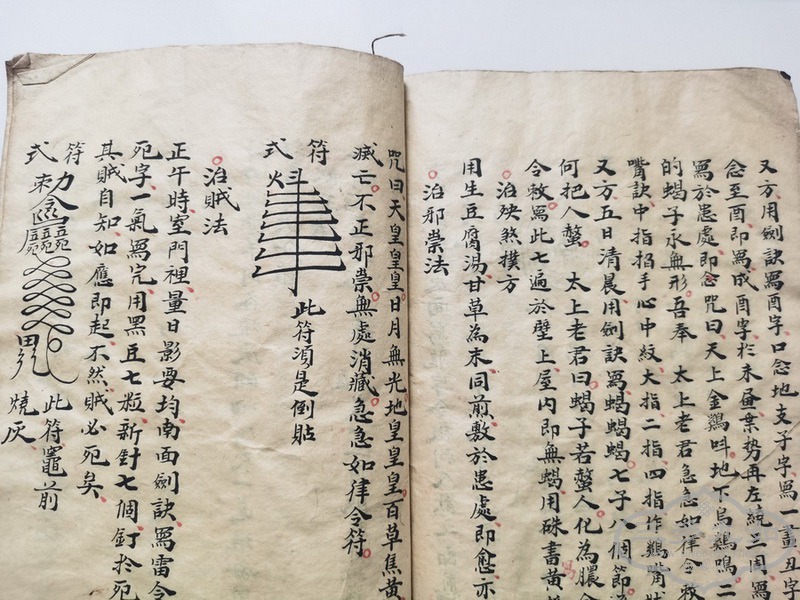 又方用劍訣寫酉字口念地支子字寫一畫丑字
念至酉即寫成酉字於未疊業勢再左統三周寫
寫於患處即念咒曰天上金鷄呌地下烏鷄鳴二
的蝎子永無形吾奉 太上老君急急如律令敕
嘴訣中指掐手心中紋大指二指四指作鷄嘴狀
又方五日清晨用劍訣寫蝎蝎蝎七子八個節
何把人螫 太上老君曰蝎子若螫人化為膿
令敕寫此七遍於壁上屋內即無蝎用硃書黄
治殃煞撲方
用生豆腐湯甘草為末同煎敷於患處即愈亦
治邪祟法
咒曰天皇皇皇日月無光地皇皇皇百草焦黄
滅亡不正邪祟無處消藏急急如律令符
符式
此符須是倒貼
治賊法
正午時室門裡量日影要均南面劍訣寫雷令
死字一氣寫完用黑豆七粒新針七個釘於死
其賊自知如應即起不然賊必死矣
符式
此符竈前
燒灰